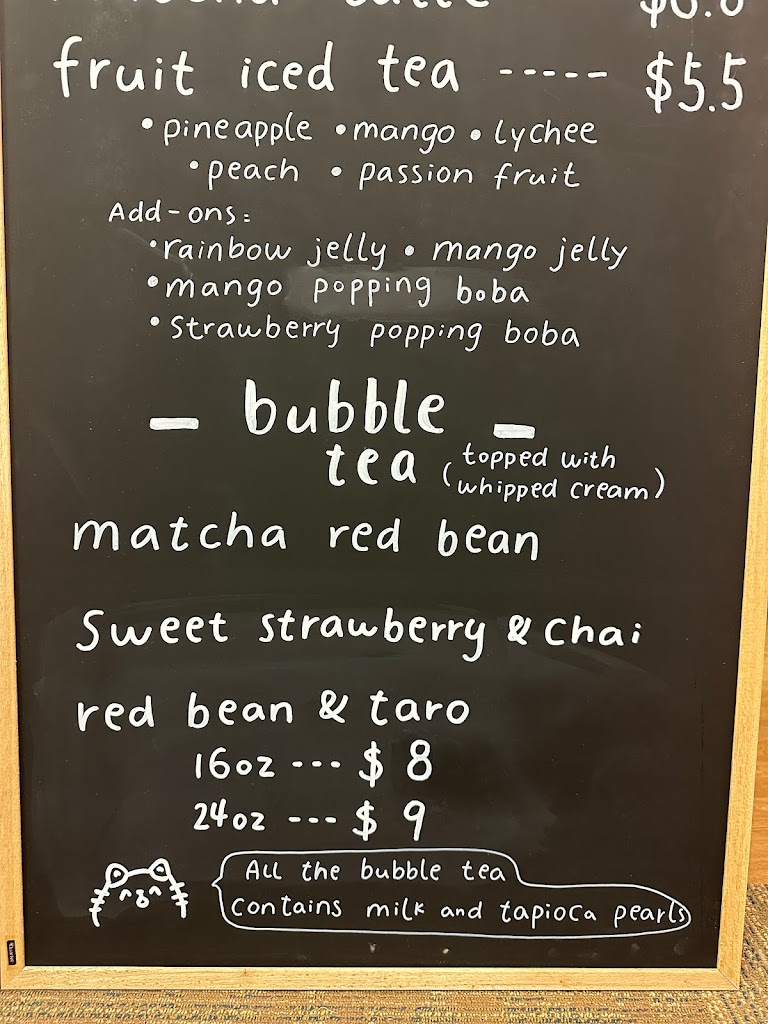 fruit iced tea ----- $5.5
• pineapple • mango • lychee
• peach • passion fruit
Add-ons:
• rainbow jelly • mango jelly
• mango popping boba
• Strawberry popping boba
– bubble –
tea (topped with
whipped cream)
matcha red bean
Sweet strawberry & Chai
red bean & taro
16oz --- $8
24oz --- $9
All the bubble tea
contains milk and tapioca pearls